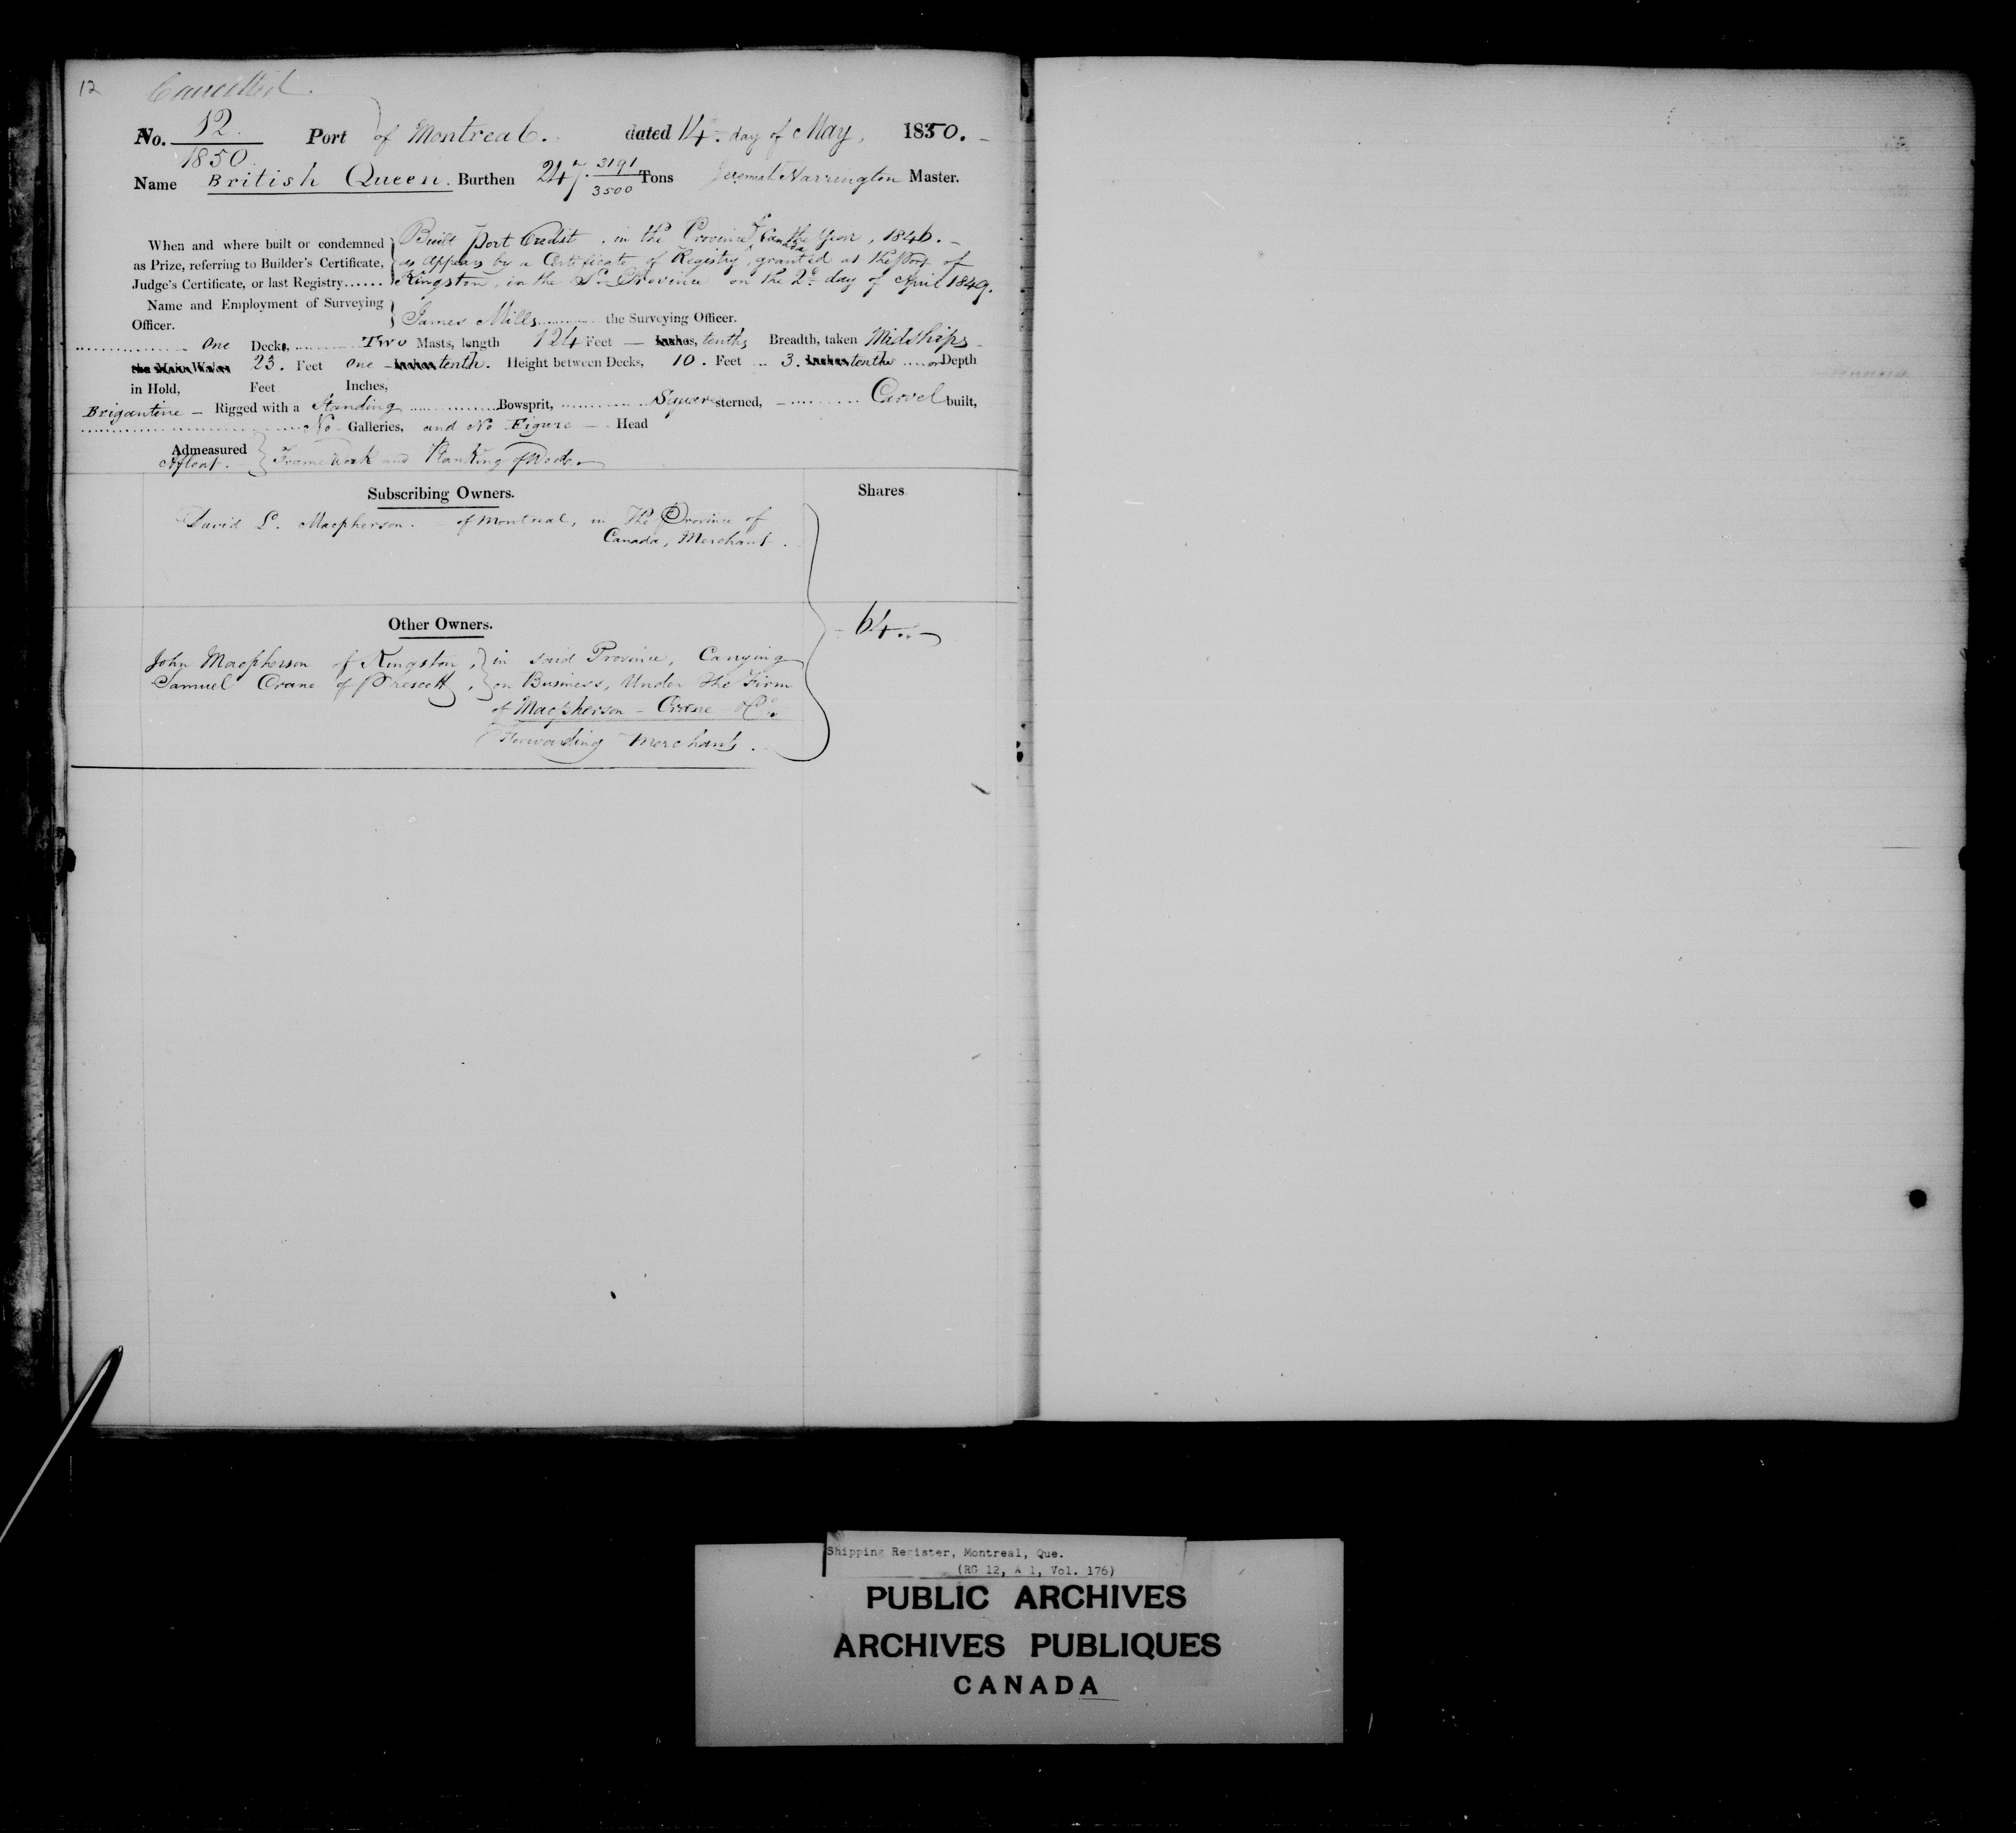 12 Cancelled.
No. 12 Port of Montreal. dated 14. day of May, 1850.
1850.
Name British Queen. Burthen 247. 3191/3500 Tons Harrington Master.
When and where built or condemned
as Prize, referring to Builder's Certificate,
Judge's Certificate, or last Registry......
Built Port Credit, in the Province of Canada the Year, 1846.
as appears by a Certificate of Registry, granted at the Port of
Kingston, in the Sd. Province on the 2d day of April 1849.
Name and Employment of Surveying
Officer. James Mills the Surveying Officer.
One Decks, Two Masts, length 124 Feet — Inches, tenths Breadth, taken Midships
the Main Wales 23. Feet one Inches tenth. Height between Decks, 10. Feet 3. Inches tenths or Depth
in Hold, Feet Inches,
Brigantine — Rigged with a Standing Bowsprit, Square sterned, — Carvel built,
No Galleries, and No Figure — Head
Admeasured
Afloat. Frame Work and Planking of Wood.
Subscribing Owners. Shares
David L. Macpherson. of Montreal, in The Province of
Canada, Merchant.
64.
Other Owners.
John Macpherson of Kingston, in said Province, Carrying
Samuel Crane of Prescott, on Business, Under The Firm
of Macpherson – Crane & Co.
Forwarding Merchants.
Shipping Register, Montreal, Que.
(RG 12, A 1, Vol. 176)
PUBLIC ARCHIVES
ARCHIVES PUBLIQUES
CANADA